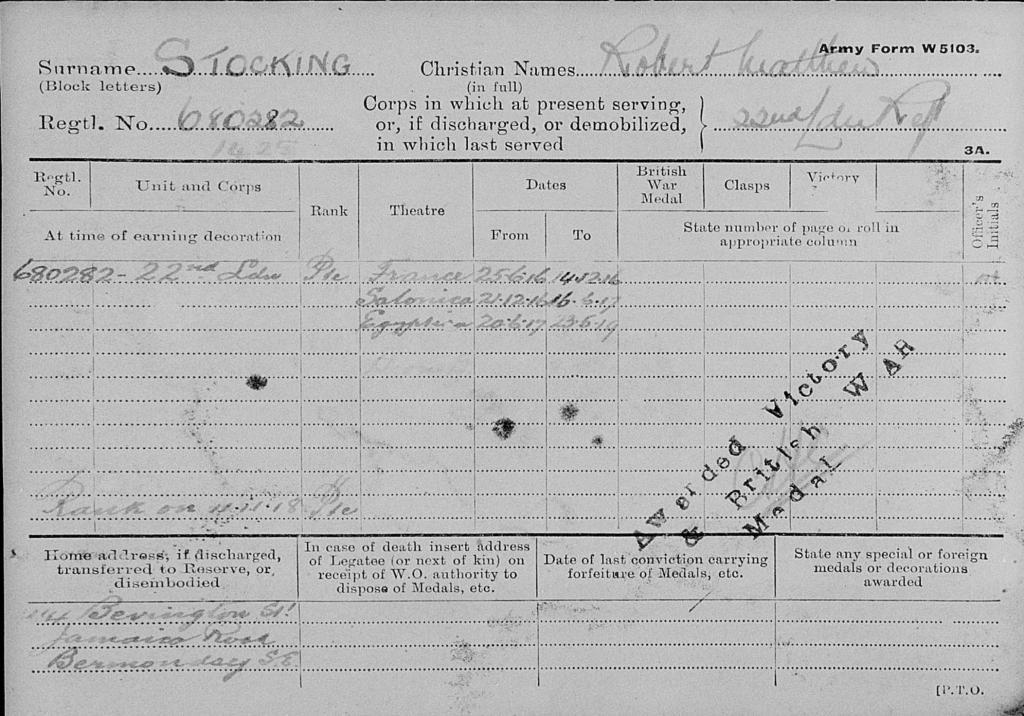 Army Form W 5103.
Surname STOCKING Christian Names Robert Matthew
(Block letters) (in full)
Regtl. No. 680282 Corps in which at present serving, or, if discharged, or demobilized, in which last served 22nd Ldn Regt
3A.
Regtl. No. Unit and Corps Rank Theatre Dates British War Medal Clasps Victory Officer's Initials
At time of earning decoration From To State number of page of roll in appropriate column
680282 - 22nd Ldn Pte France 25.6.16 14.12.16
Salonica 21.12.16 16.6.17
20.6.17 23.5.19
Awarded Victory
& British WAR
Medal
Rank on 11.11.18 Pte
Home address, if discharged, transferred to Reserve, or, disembodied
In case of death insert address of Legatee (or next of kin) on receipt of W.O. authority to dispose of Medals, etc.
Date of last conviction carrying forfeiture of Medals, etc.
State any special or foreign medals or decorations awarded
Bevington St
Jamaica Road
Bermondsey S.E
[P.T.O.